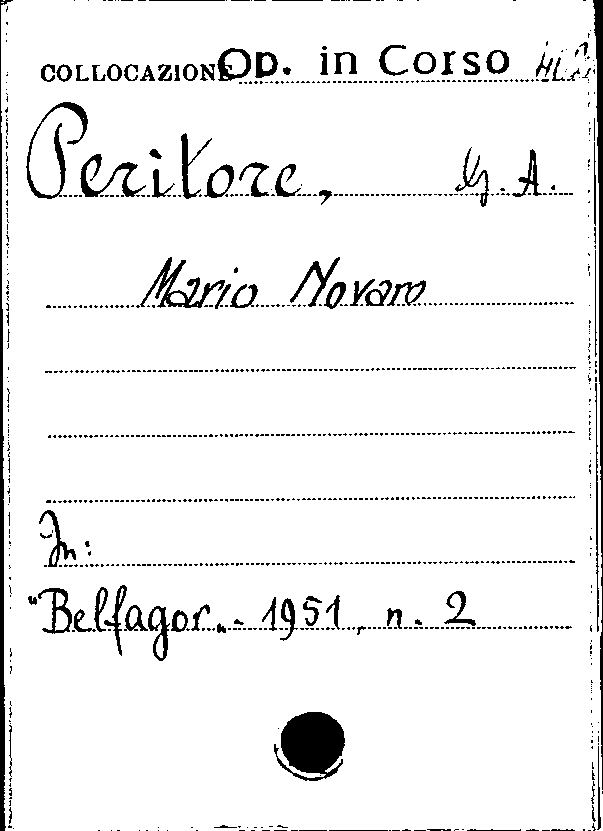 COLLOCAZIONE OP. in Corso
Peritore, G. A.
Mario Novaro
In:
"Belfagor„ - 1951, n. 2